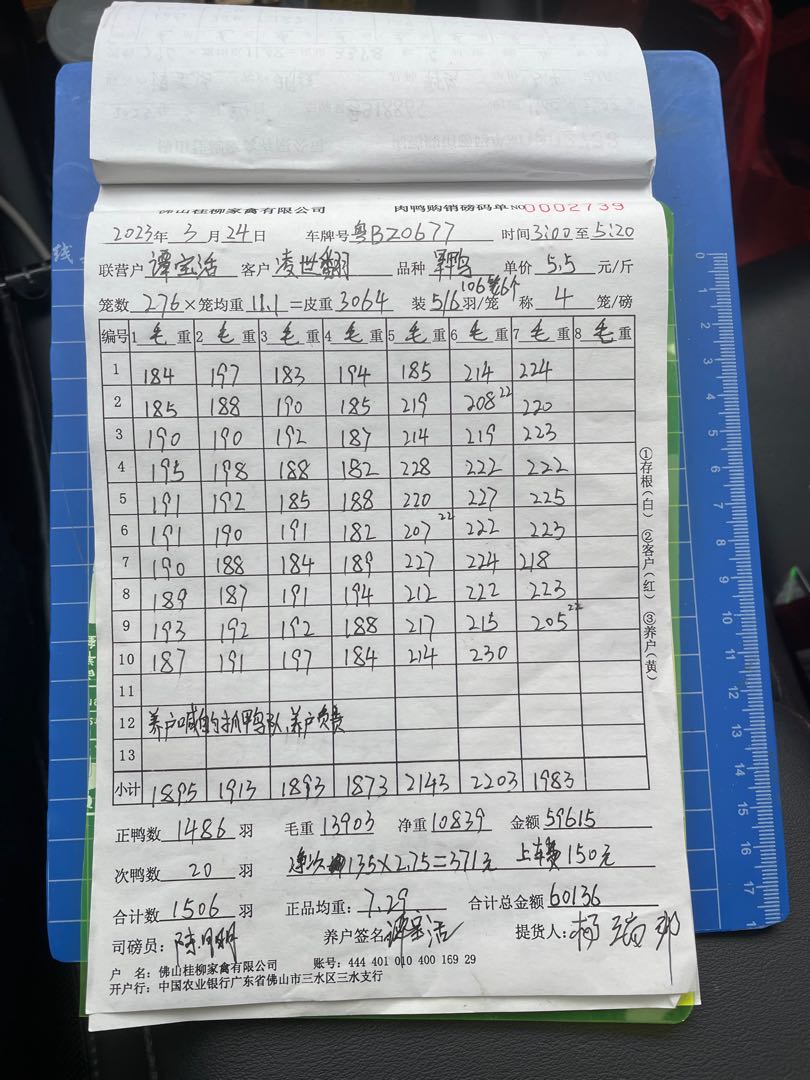 佛山桂柳家禽有限公司 肉鸭购销磅码单 NO 0002739
2023年 3月24日 车牌号 粤BZ0677 时间 3:00 至 5:20
联营户 谭宝活 客户 凌世翻 品种 单价 5.5 元/斤
106笼6个
笼数 276 × 笼均重 11.1 = 皮重 3064 装 5/6 羽/笼 称 4 笼/磅
编号 1 毛重 2 毛重 3 毛重 4 毛重 5 毛重 6 毛重 7 毛重 8 毛重
1 184 197 183 194 185 214 224
2 185 188 190 185 219 208 22 220
3 190 190 192 187 214 219 223
4 195 198 188 182 228 222 222
5 191 192 185 188 220 227 225
6 191 190 191 182 207 22 222 223
7 190 188 184 189 227 224 218
8 189 187 191 194 212 222 223
9 193 192 192 188 217 215 205 22
10 187 191 197 184 214 230
11
12 养户喊的抓鸭队,养户负责
13
小计 1895 1913 1893 1873 2143 2203 1983
①存根(白) ②客户(红) ③养户(黄)
正鸭数 1486 羽 毛重 13903 净重 10839 金额 59615
次鸭数 20 羽 135×2.75=371元 上车费150元
合计数 1506 羽 正品均重: 7.29 合计总金额 60136
司磅员: 养户签名 谭宝活 提货人: 杨
户 名: 佛山桂柳家禽有限公司 账号: 444 401 010 400 169 29
开户行: 中国农业银行广东省佛山市三水区三水支行
0 1 2 3 4 5 6 7 8 9 10 11 12 13 14 15 16 17